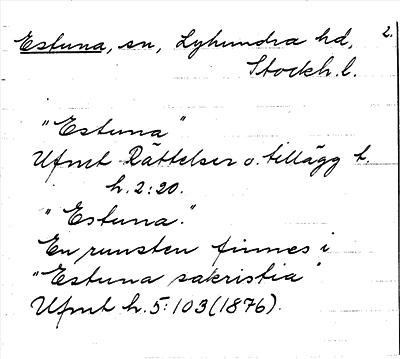 Estuna, sn, Lyhundra hd, 2.
Stockh. l.
"Estuna"
Ufmt Rättelser o. tillägg t.
h. 2:20.
"Estuna."
En runsten finnes i
"Estuna sakristia"
Ufmt h. 5:103 (1876).